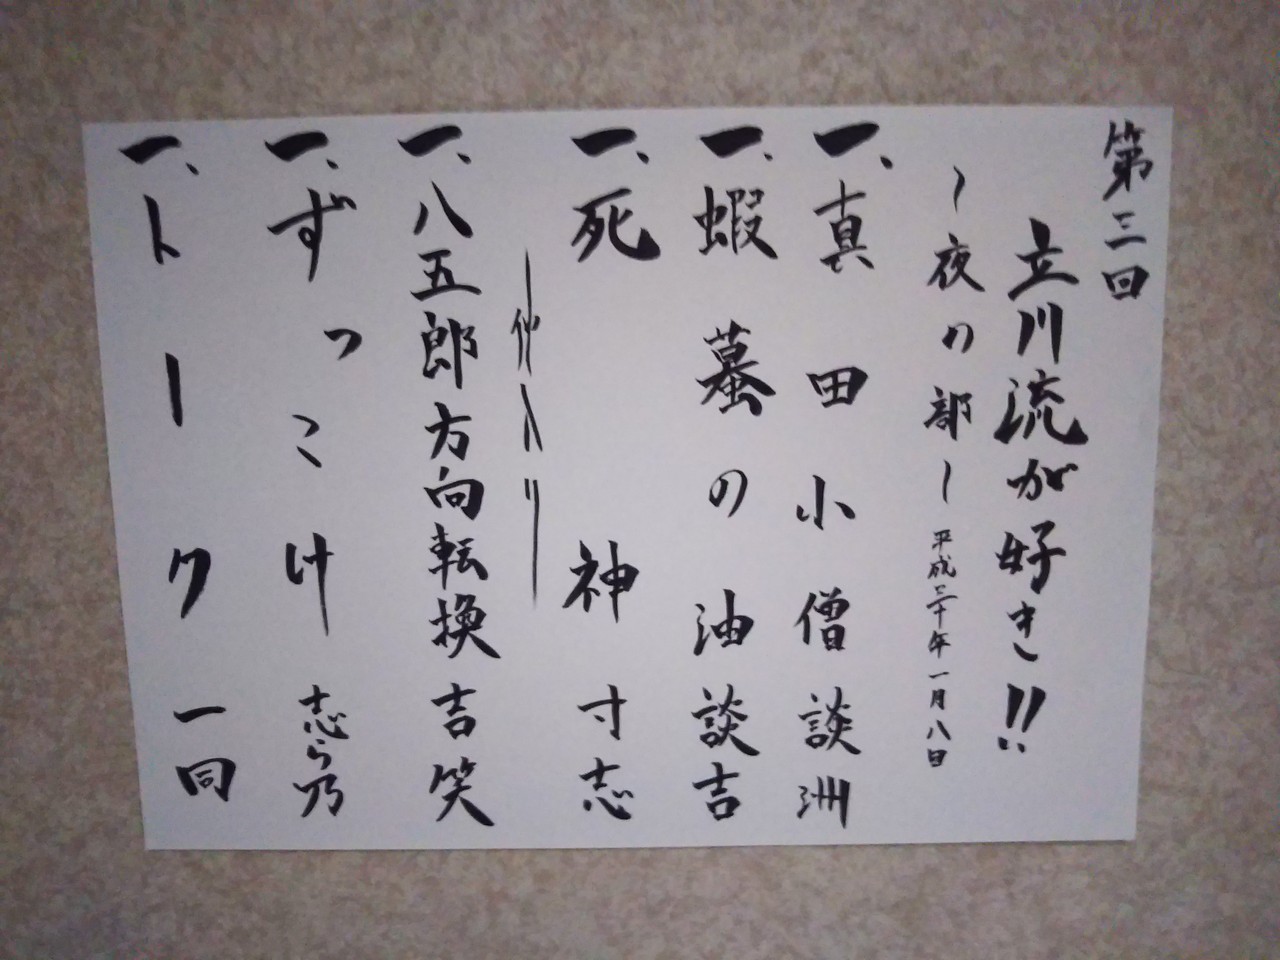 第三回
立川流が好き!!
〜夜の部〜 平成三十年一月八日
一、真田小僧 談洲
一、蝦蟇の油 談吉
一、死神 寸志
仲入り
一、八五郎方向転換 吉笑
一、ずっこけ 志ら乃
一、トーク 一同